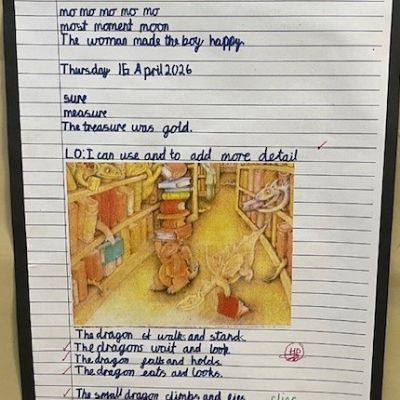 mo mo mo mo mo
most moment moon
The woman made the boy happy.
Thursday 16 April 2026
sure
measure
The treasure was gold.
LO: I can use and to add more detail
The dragon walk and stands.
The dragons wait and look
The dragon and holds.
The dragon eats and looks.
The small dragon climbs and